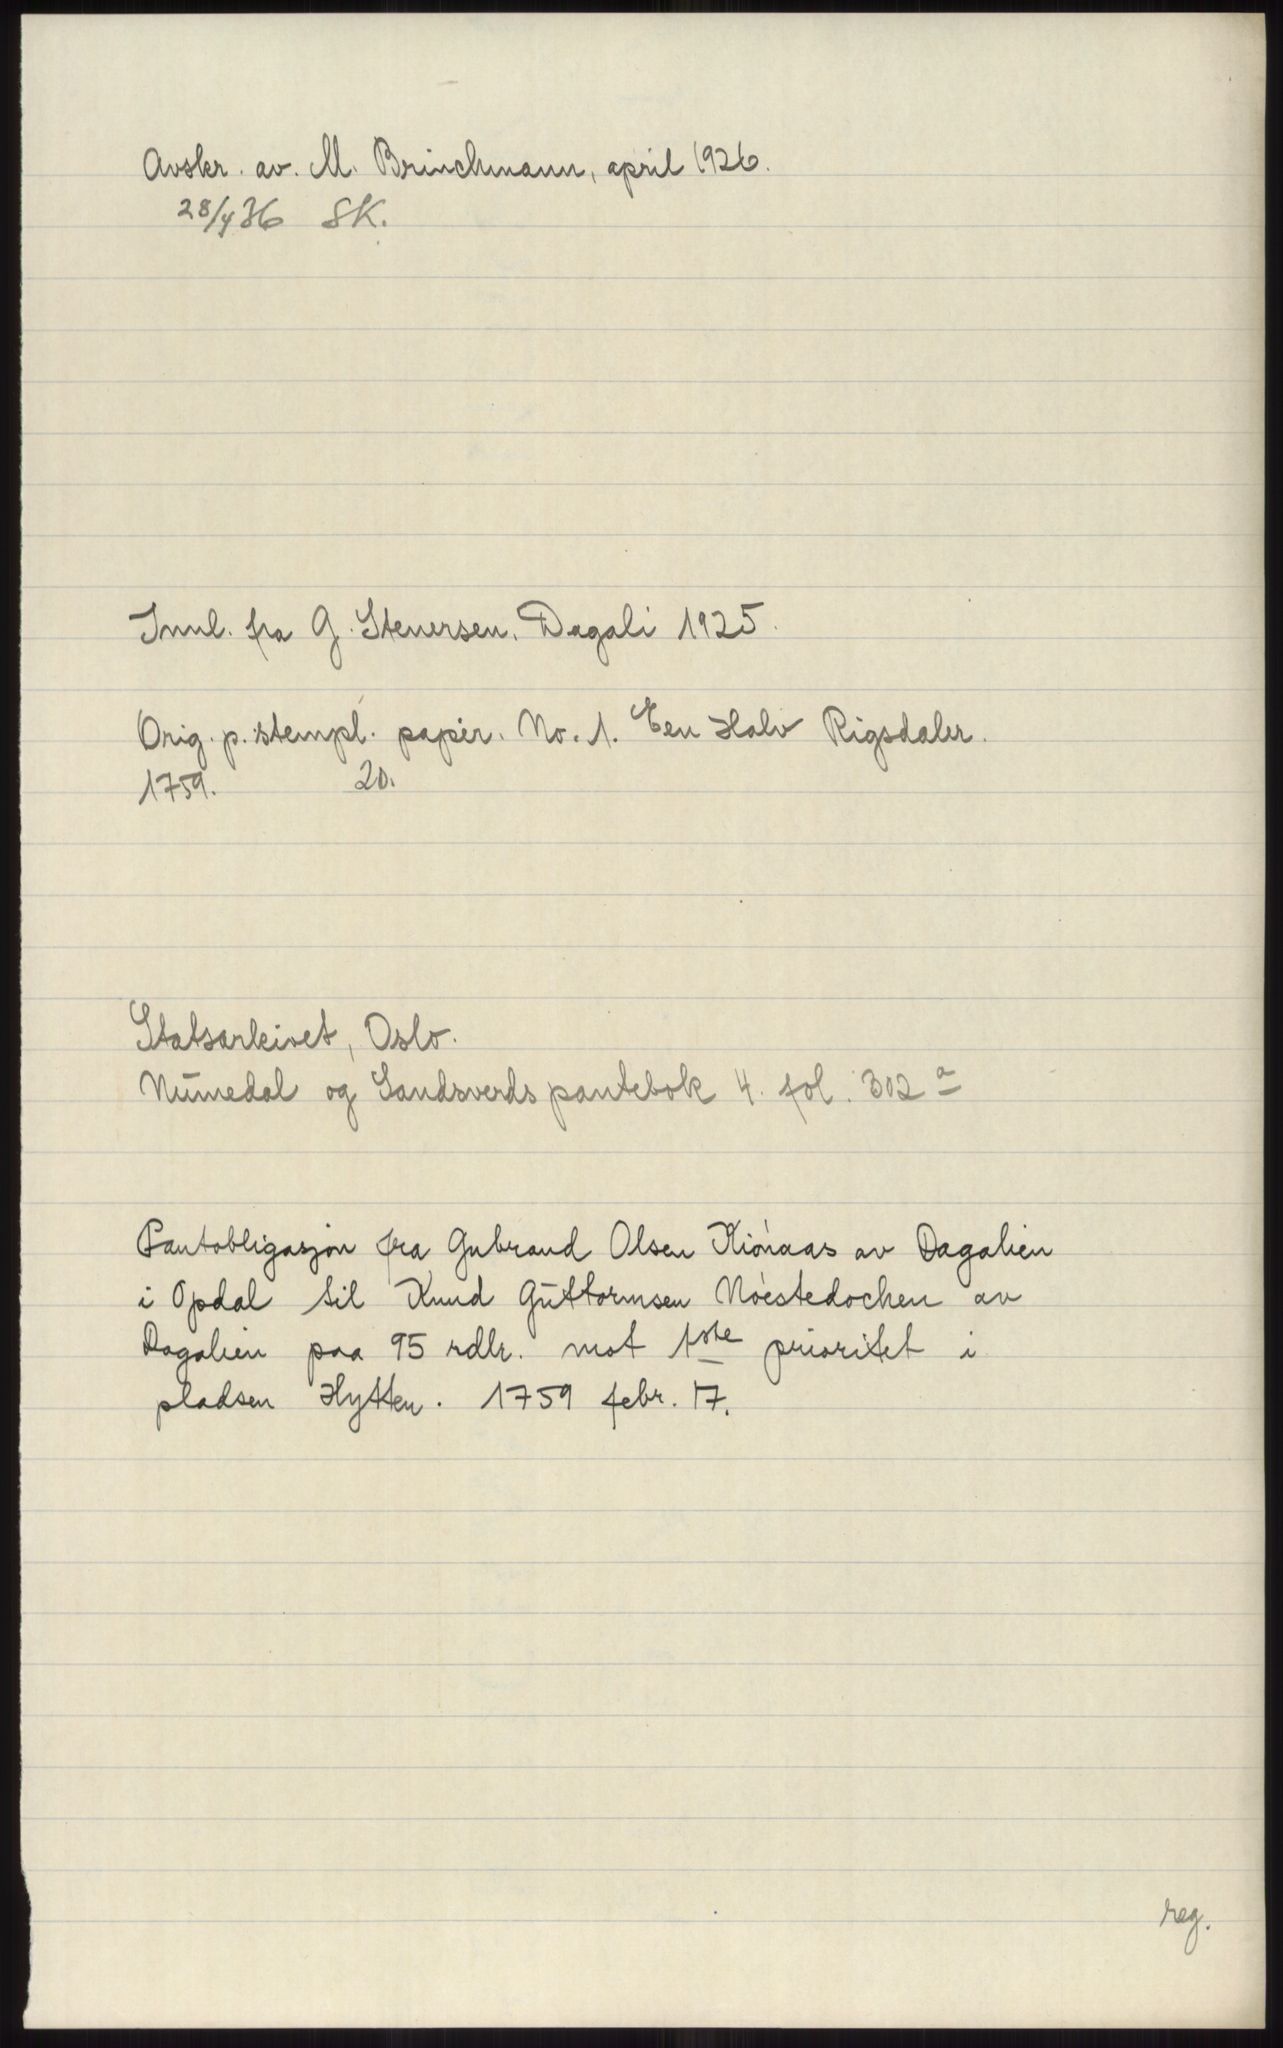 Avskr. av. M. Brinchmann, april 1926.
28/4 36 SK.
Innl. fra G. Stenersen, Dagali 1925.
Orig. p. stempl. papir. No. 1. Een Halv Rigsdaler.
1759. 20.
Statsarkivet, Oslo.
Numedal og Sandsverds pantebok 4. fol. 302 a
Pantobligasjon fra Gubrand Olsen Kiónaas av Dagalien
i Opdal til Knud Guttormsen Nóestedochen av
Dagalien paa 95 rdlr. mot 1ste prioritet i
pladsen Hytten. 1759 febr. 17.
reg.